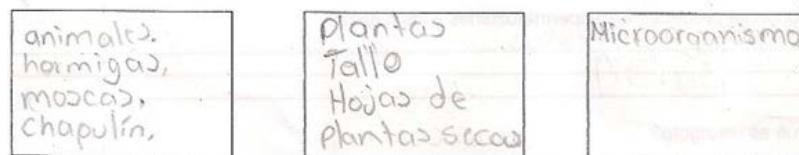 animales.
hormigas,
moscas,
chapulín.
plantas
Tallo
Hojas de
plantas secas
Microorganismo